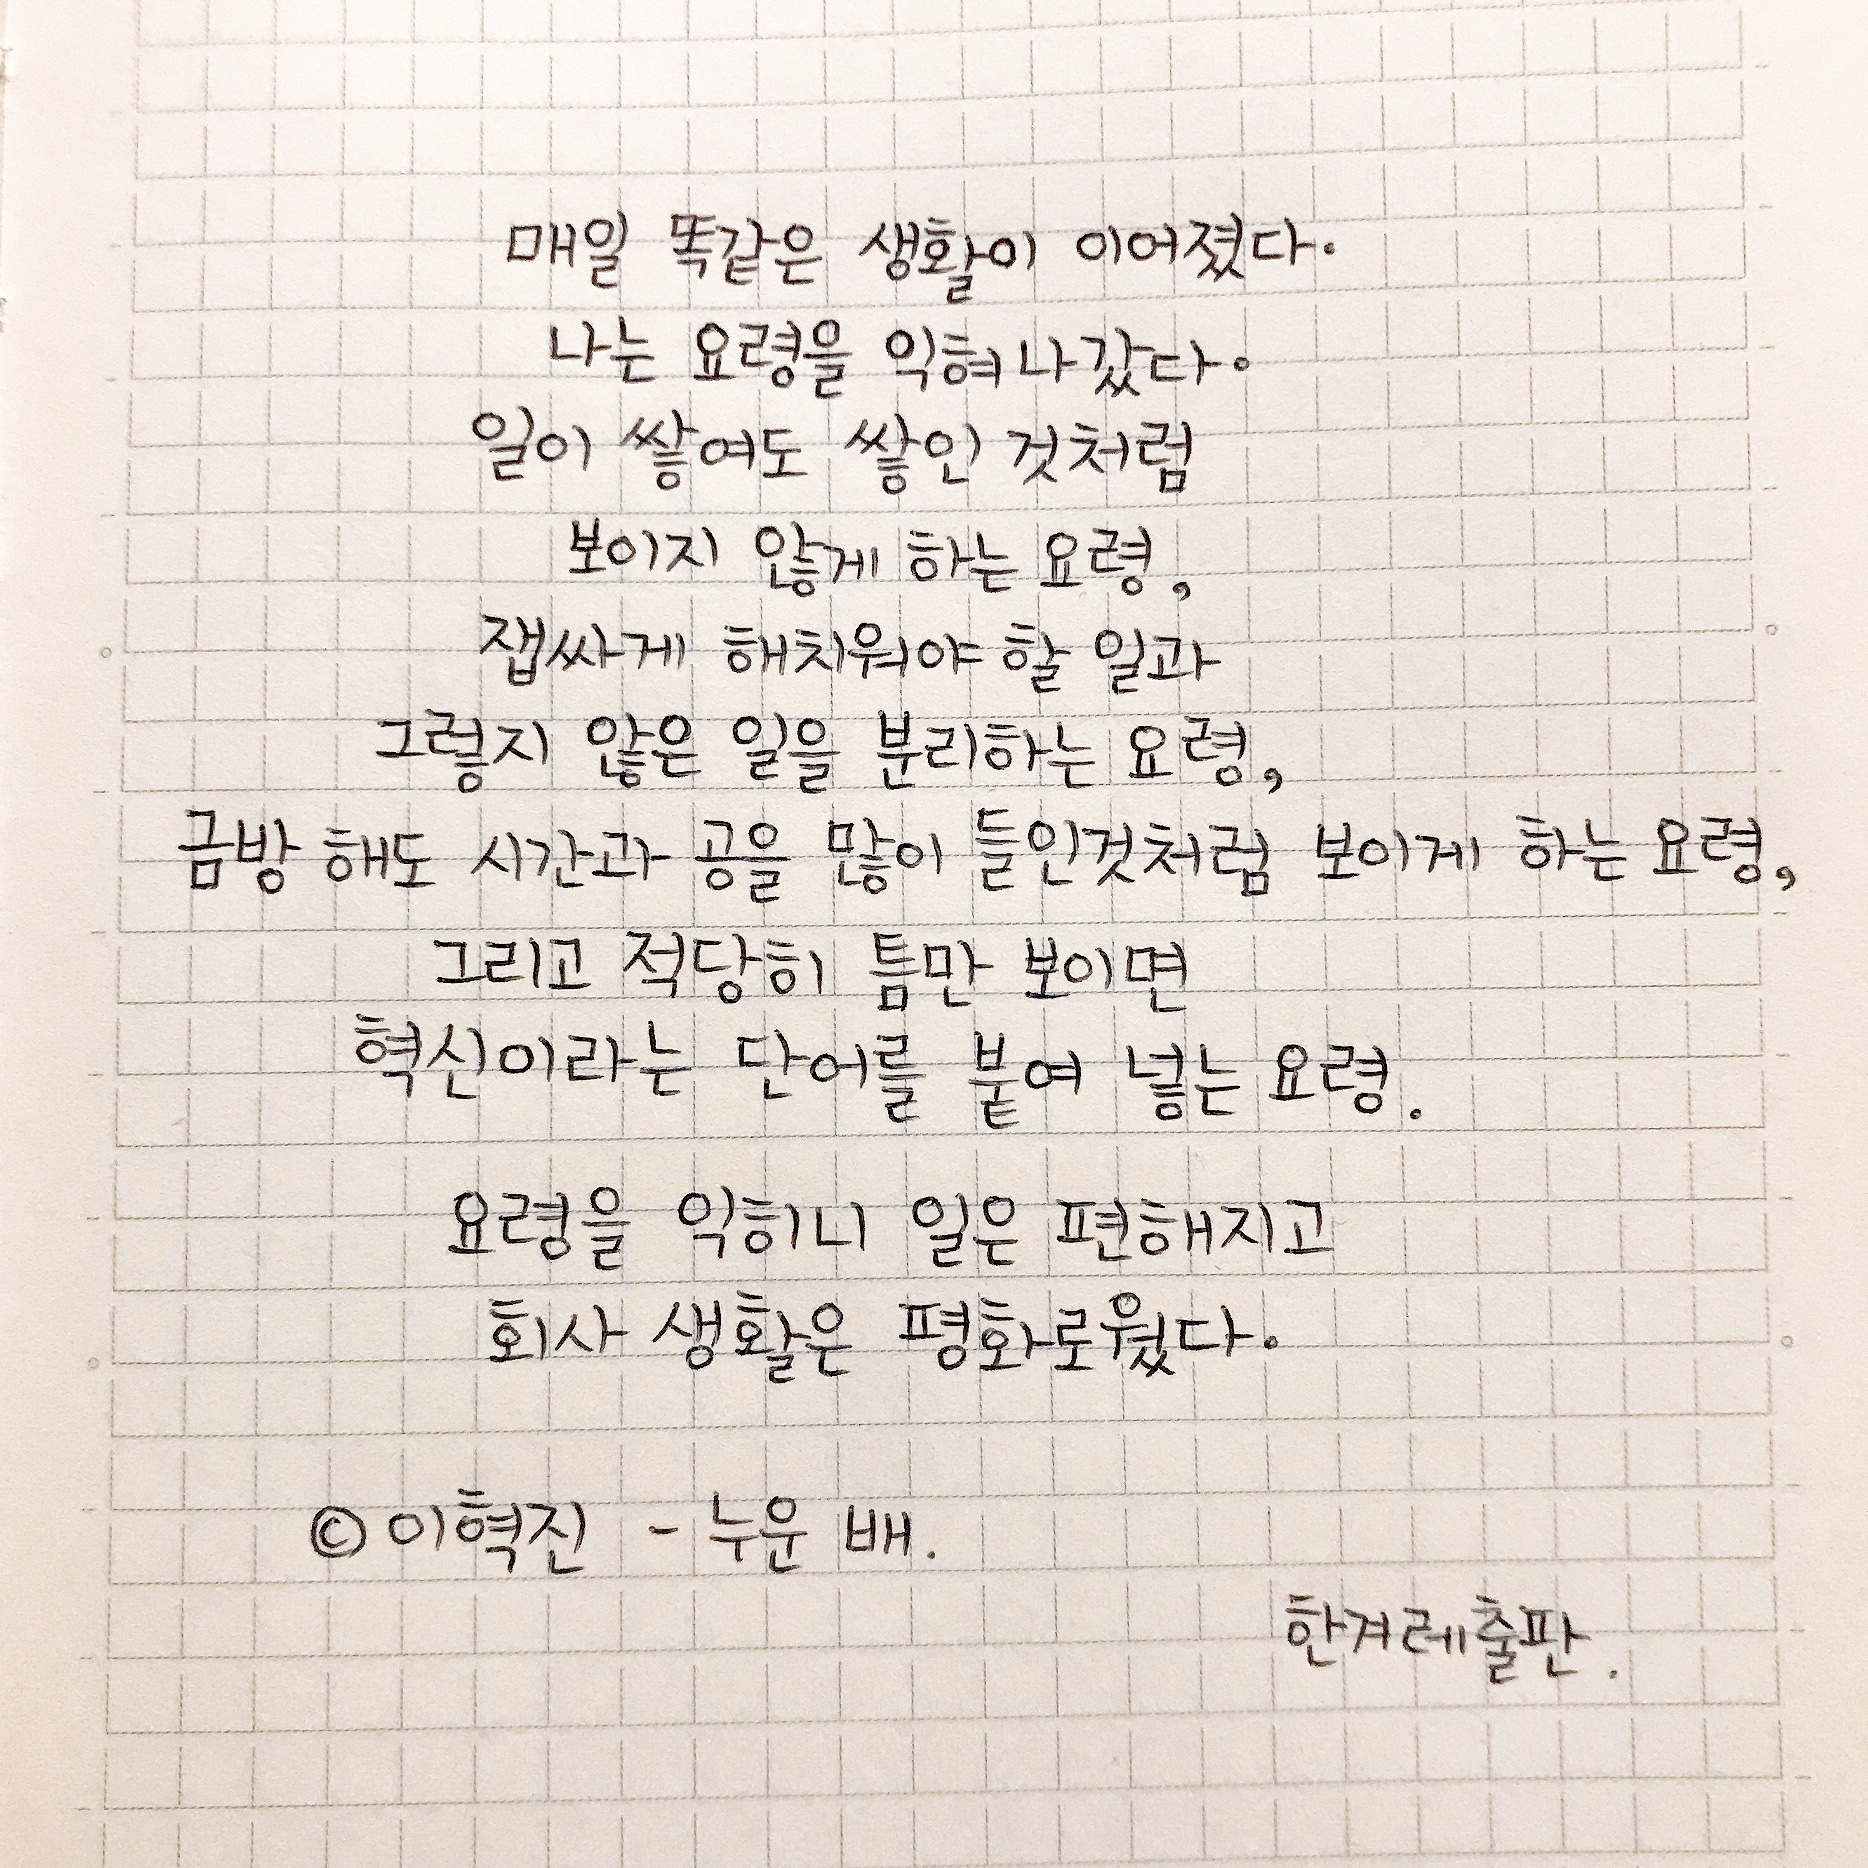 매일 똑같은 생활이 이어졌다.
나는 요령을 익혀 나갔다.
일이 쌓여도 쌓인 것처럼
보이지 않게 하는 요령,
잽싸게 해치워야 할 일과
그렇지 않은 일을 분리하는 요령,
금방 해도 시간과 공을 많이 들인것처럼 보이게 하는 요령,
그리고 적당히 틈만 보이면
혁신이라는 단어를 붙여 넣는 요령.
요령을 익히니 일은 편해지고
회사 생활은 평화로웠다.
© 이혁진 - 누운 배.
한겨레출판.